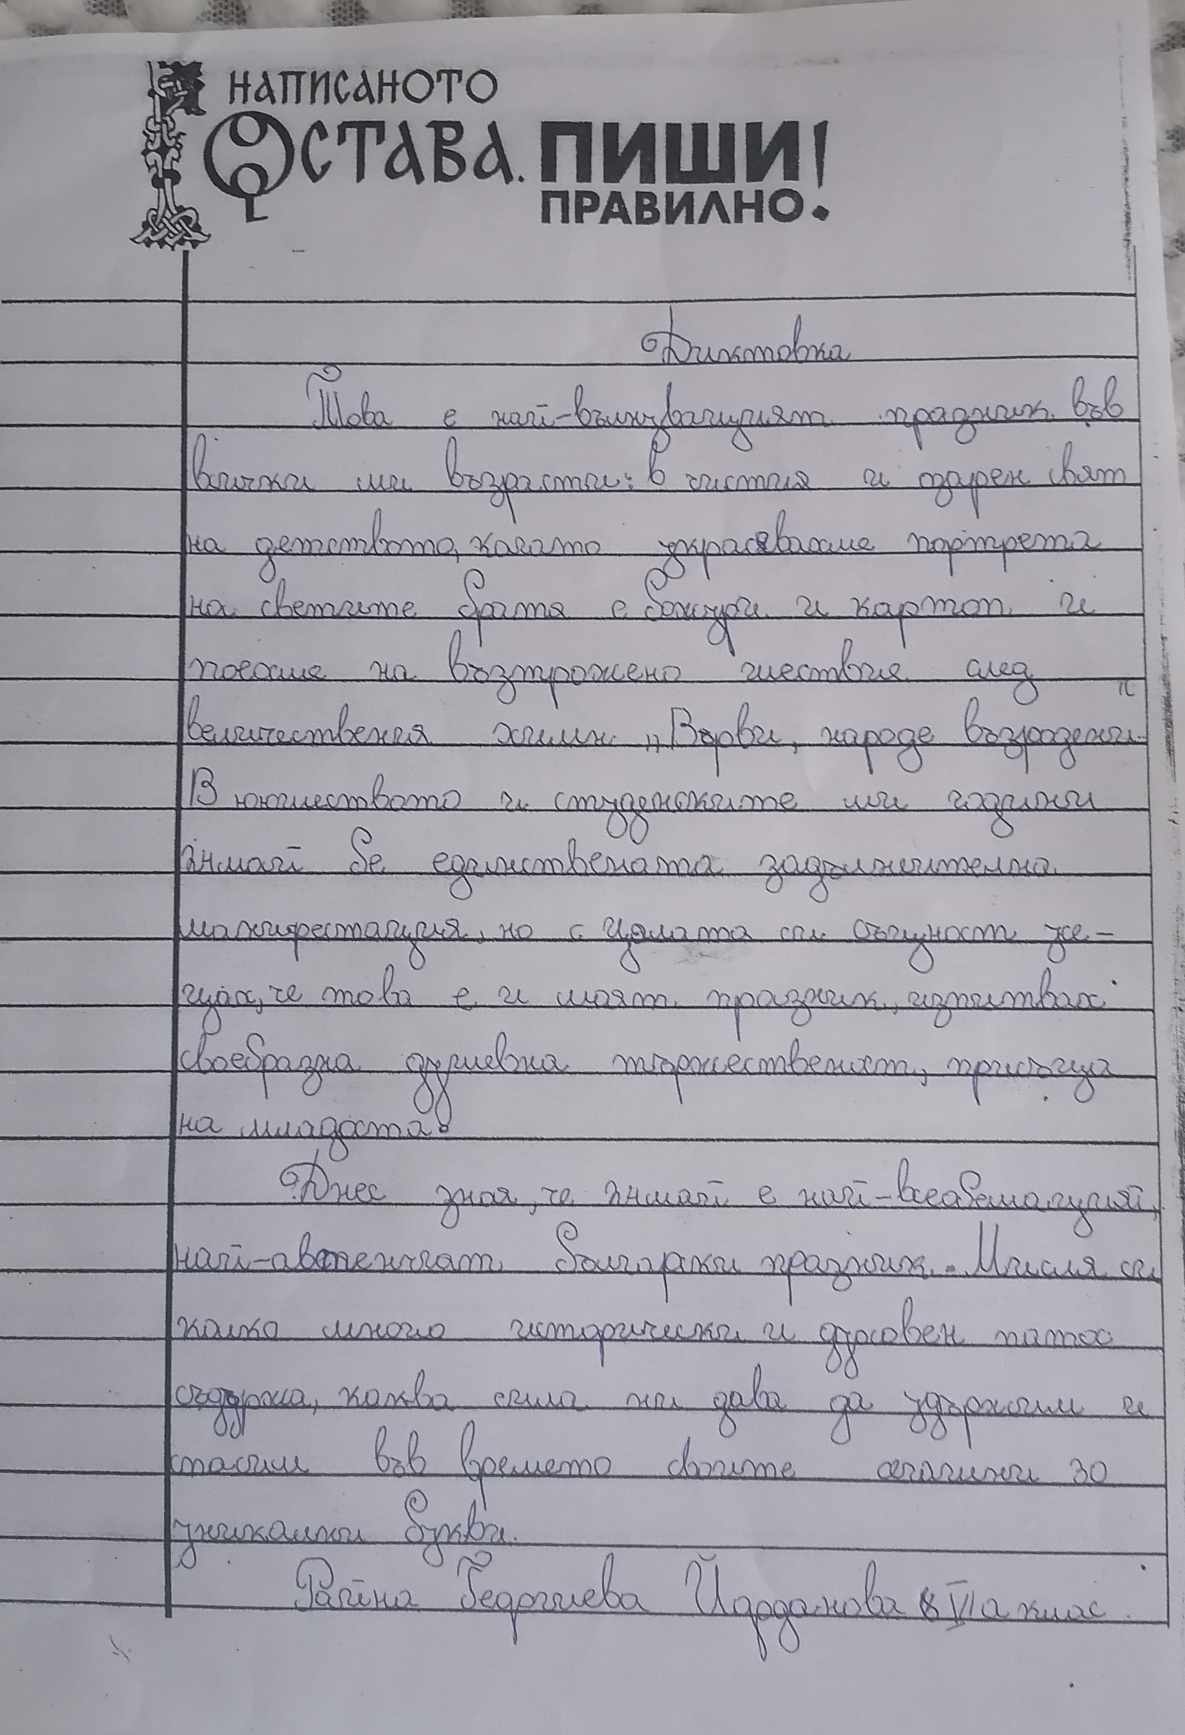 НАПИСАНОТО
ОСТАВА. ПИШИ!
ПРАВИЛНО.
Диктовка
Това е най-вълнуващият празник във
всички ми възрасти: в чистия и озарен свят
на детството, когато украсявахме портрета
на светите братя с божури и картон и
поехме на възторжено шествие след
величествения химн „Върви, народе възродени.
В юношеството и студенските ми години
24 май бе единствената задължителна
манифестация, но с цялата си същност усе-
щах, че това е и моят празник, изпитвах
своебразна душевна тържественост, присъща
на младоста.
Днес зная, че 24 май е най-всеобемащият,
най-автентичат български празник. Мисля си
колко много исторически и духовен патос
съдържа, каква сила ни дава да удържим и
спасим във времето своите огапинни 30
уникални букви.
Галина Георгиева Йорданова VI а клас.